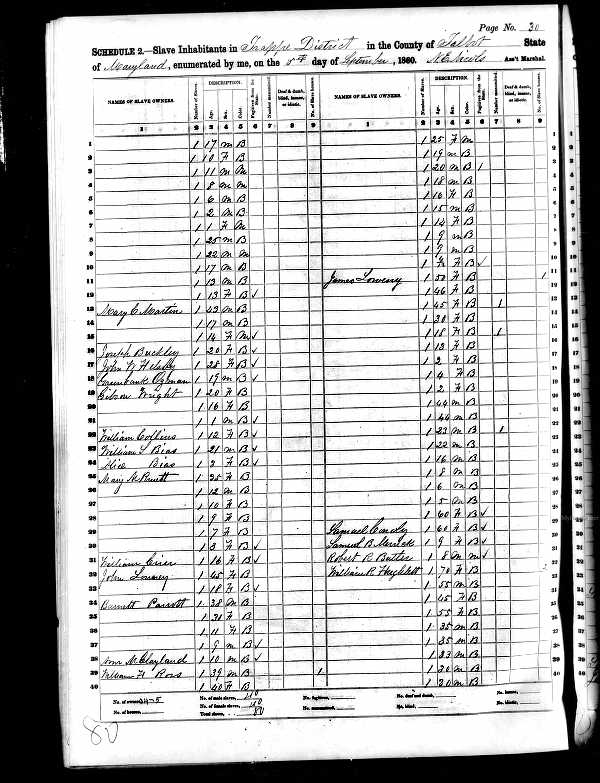 Page No. 30
SCHEDULE 2.—Slave Inhabitants in Trappe District in the County of Talbot State
of Maryland, enumerated by me, on the 5th day of September, 1860. Ass't Marshal.
NAMES OF SLAVE OWNERS.
Number of Slaves.
DESCRIPTION.
Age.
Sex.
Color.
Fugitives from the State.
Number manumitted.
Deaf & dumb, blind, insane, or idiotic.
No. of Slave houses.
NAMES OF SLAVE OWNERS.
Number of Slaves.
DESCRIPTION.
Age.
Sex.
Color.
Fugitives from the State.
Number manumitted.
Deaf & dumb, blind, insane, or idiotic.
No. of Slave houses.
1 2 3 4 5 6 7 8 9 1 2 3 4 5 6 7 8 9
1 1 17 m B 1 25 F M
2 1 10 F B 1 19 m B
3 1 11 m M 1 20 m B
4 1 8 m M 1 18 m B
5 1 6 m B 1 16 F B
6 1 2 m B 1 15 m B
7 1 1 F M 1 14 F B
8 1 25 m B 1 9 m B
9 1 22 m M 1 9 m B
10 1 17 m B 1 F B
11 1 13 m B James Lowery 1 50 F B 1
12 1 13 F B 1 46 F B
13 Mary C Martin 1 43 m B 1 45 F B 1
14 1 17 m B 1 30 F B
15 1 14 F M 1 18 F B 1
16 Joseph Buckley 1 20 F B 1 13 F B
17 John 1 28 F B 1 2 F B
18 1 19 m B 1 4 F B
19 Gibson Wright 1 20 F B 1 2 F B
20 1 16 F B 1 44 m B
21 1 1 m B 1 44 m B
22 William Collins 1 12 F B 1 23 m B 1
23 William Bias 1 21 m B 1 22 m B
24 Alice Bias 1 3 F B 1 16 m B
25 Mary 1 35 F B 1 8 m B
26 1 12 m B 1 6 m B
27 1 10 F B 1 5 m B
28 1 9 F B 1 60 F B
29 1 7 F B Samuel 1 60 F B
30 1 3 F B Samuel B Merrick 1 9 F B
31 William 1 16 F B Robert B Butler 1 8 m m
32 John Lowery 1 45 F B William R Hughlett 1 70 F B 2
33 1 18 F B 1 55 m B
34 Barnett Parrott 1 38 m B 1 45 F B
35 1 31 F B 1 55 F B
36 1 11 F B 1 35 m B
37 1 9 m B 1 35 m B
38 Wm M Clayland 1 10 m B 1 33 m B
39 William H Ross 1 39 m B 1 1 30 m B
40 1 40 F B 1 20 m B
No. of owners, No. of male slaves, 40 No. fugitives, No. deaf and dumb, No. insane,
No. of houses, No. of female slaves, 40 No. manumitted, No. blind, No. idiotic,
Total slaves, 80
80